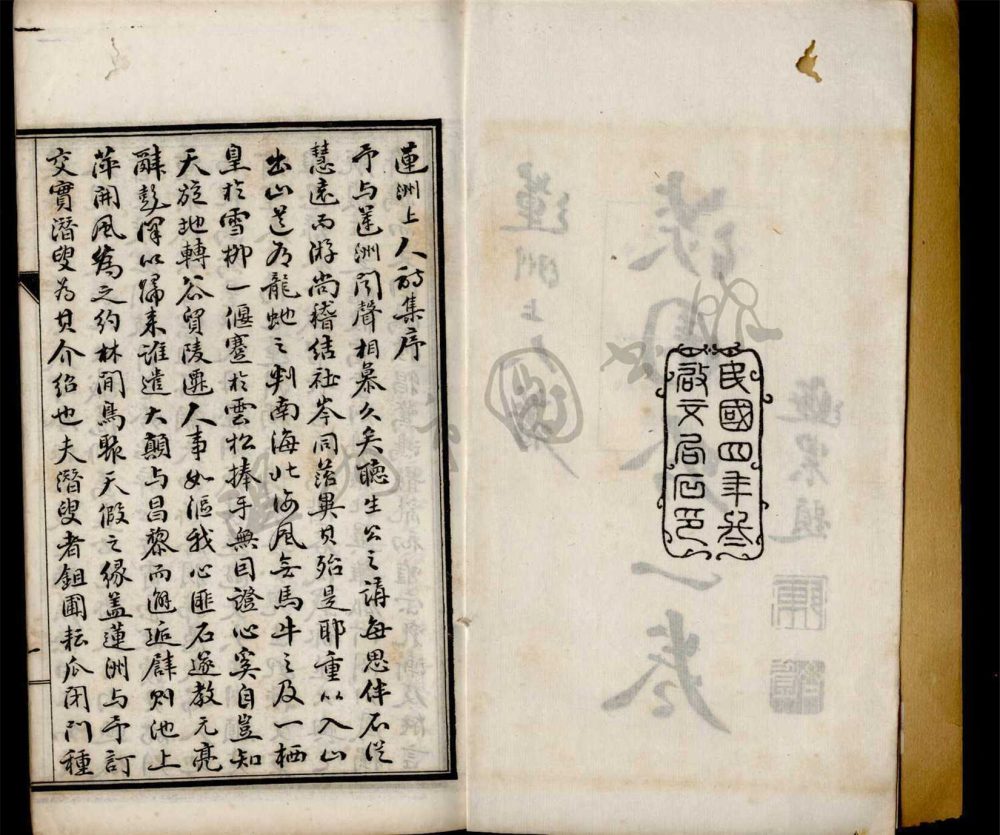 民國四年叁
啟文局石印
蓮洲上人詩集序
予与蓮洲闻聲相慕久矣聴生公之講每思伴石從
慧遠而游尚稽結社岑同苔異其殆是耶重以入山
出山龍虵之判南海北海風無馬牛之及一栖
皇於雪柳一偃蹇於雲松捧手無因證心奚自豈知
天旋地轉谷貿陵遷人事如漚我心匪石遂教元亮
辭彭澤以歸来誰遣大顛与昌黎而邂逅辟则池上
萍開風為之約林間鳥聚天假之緣盖蓮洲与予訂
交實潛叟为其介紹也夫潛叟者鉏圃耘瓜闭门種